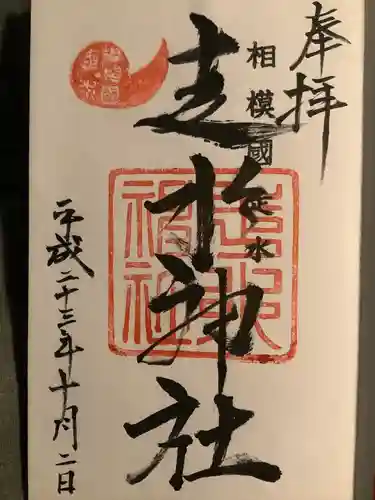 奉拝
相模國走水
走水神社
平成二十三年十月二日
走水神社